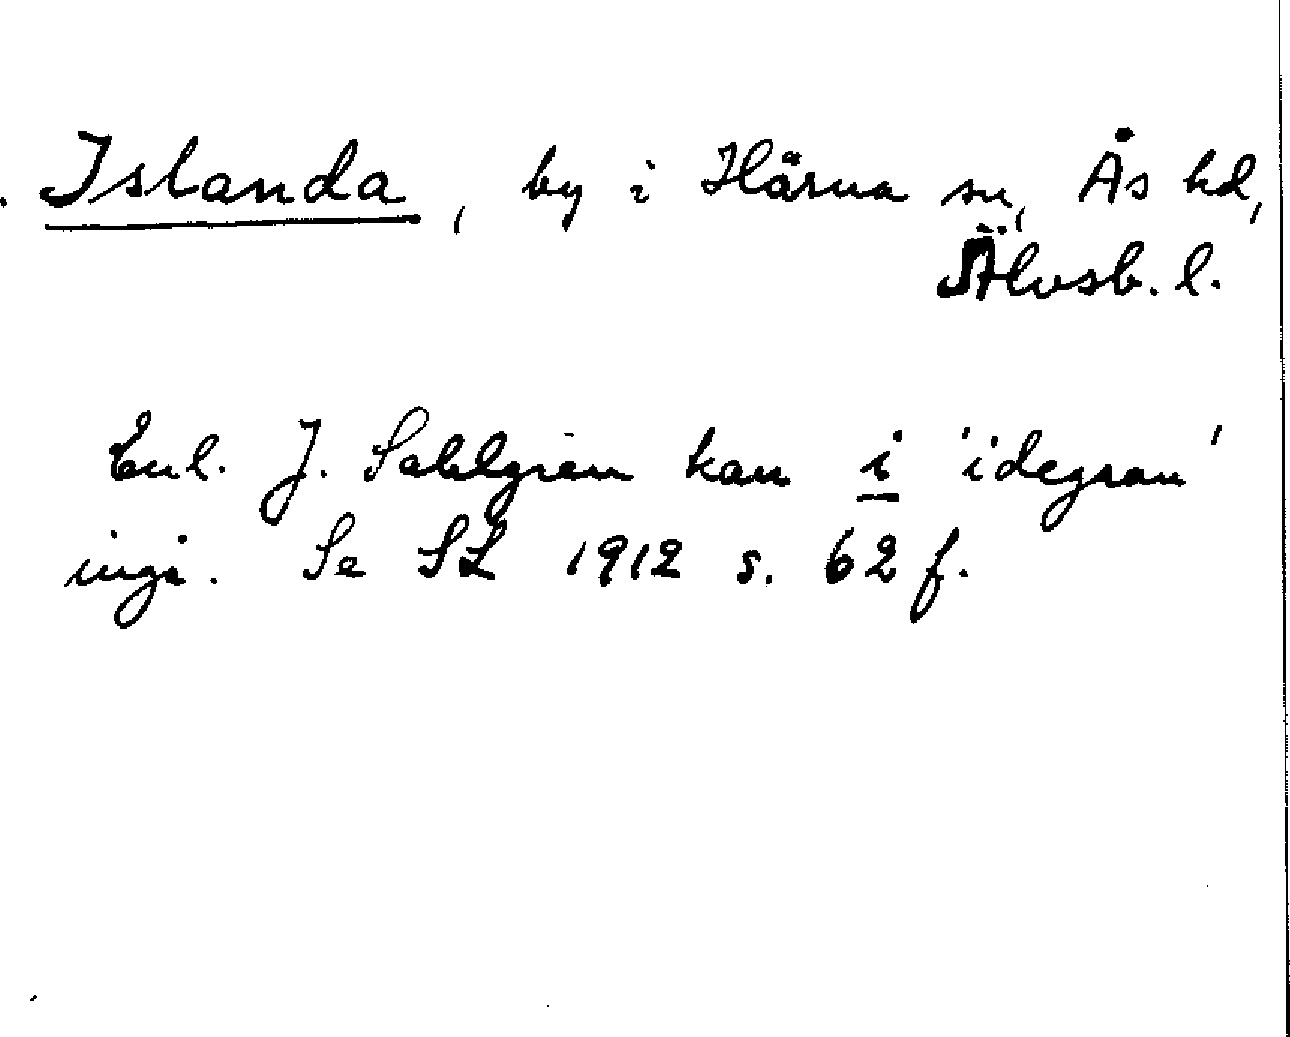 Islanda, by i Härna sn, Ås hd,
Älvsb. l.
Enl. J. Sahlgren kan i 'idegran'
ingå. Se SL 1912 s. 62 f.